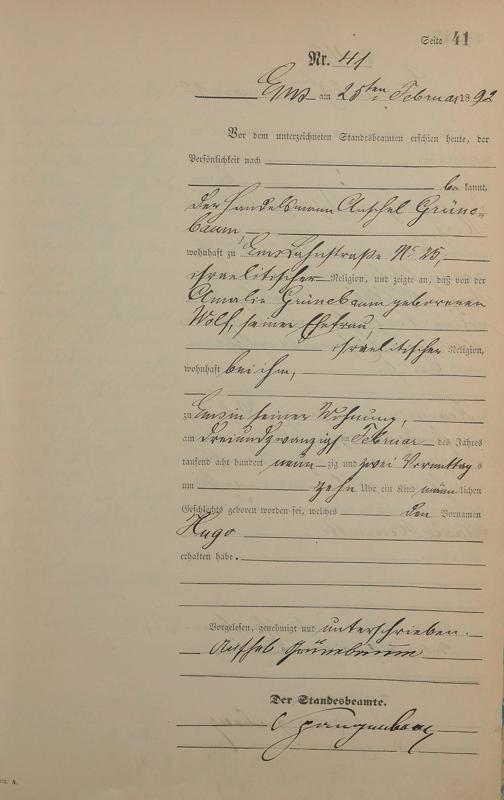 Seite 41
Nr. 41
Ems am 25ten Februar 1892
Vor dem unterzeichneten Standesbeamten erschien heute, der
Persönlichkeit nach
be kannt,
der Handelsmann Anschel Grüne-
baum,
wohnhaft zu Ems Lahnstraße No 25,
israelitischer Religion, und zeigte an, daß von der
Amalie Grünebaum geborenen
Wolf, seiner Ehefrau,
israelitischer Religion,
wohnhaft bei ihm,
zu Ems in seiner Wohnung,
am dreiundzwanzigsten Februar des Jahres
tausend acht hundert neun zig und zwei Vormittags
um zehn Uhr ein Kind männlichen
Geschlechts geboren worden sei, welches den Vornamen
Hugo
erhalten habe.
Vorgelesen, genehmigt und unterschrieben.
Anschel Grünebaum
Der Standesbeamte.
A.